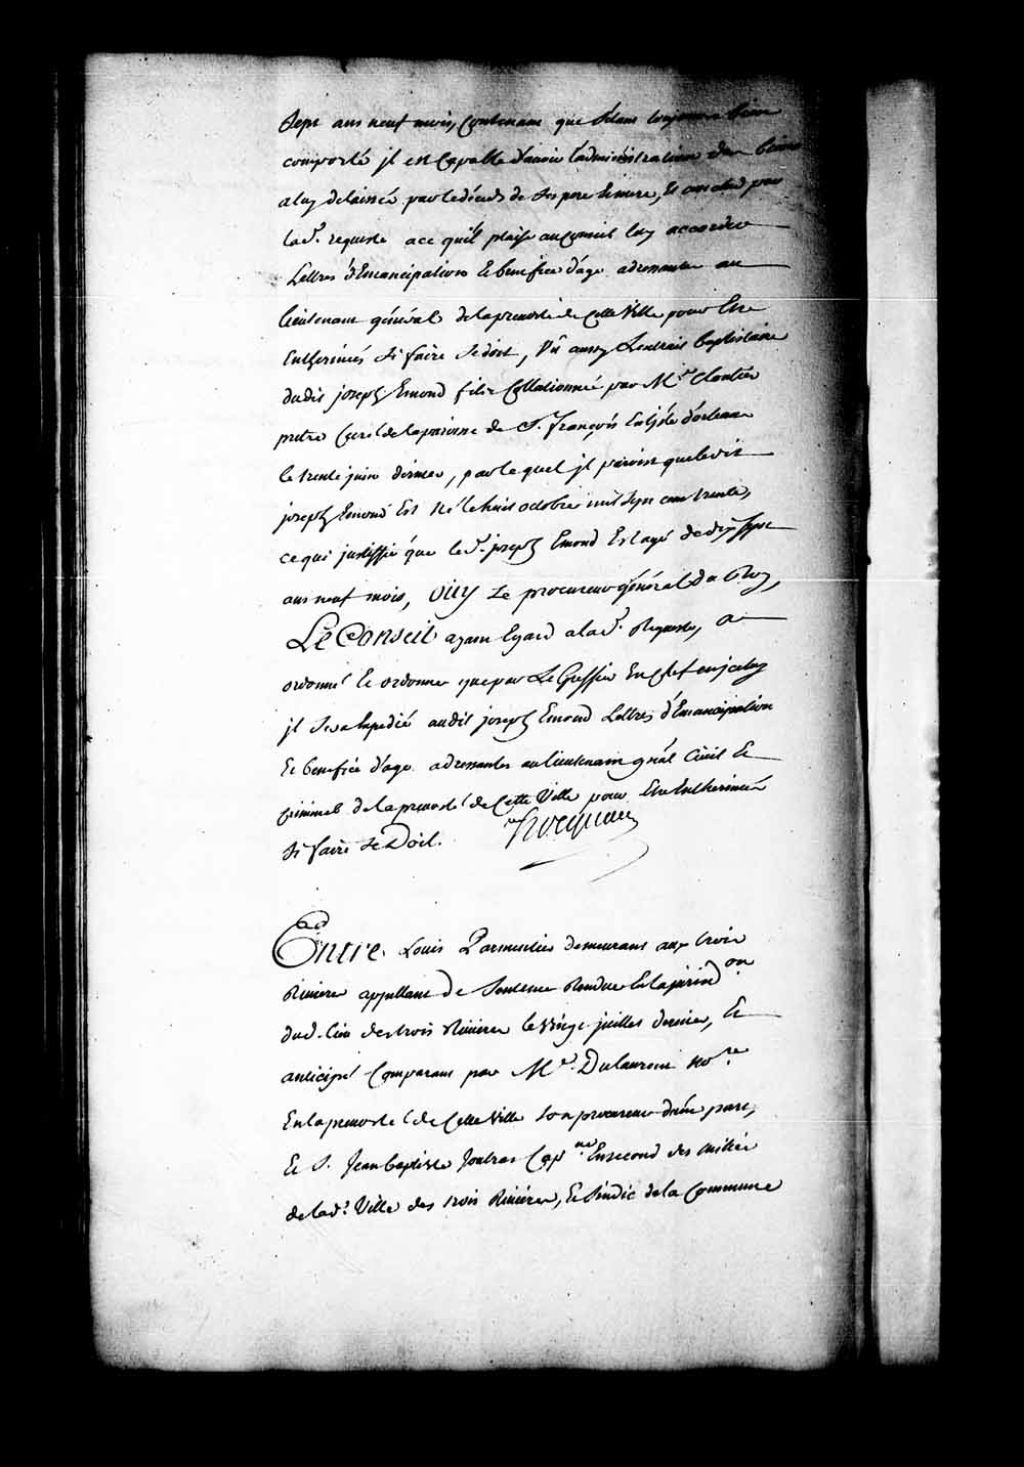 Sept ans neuf mois, Contenant que s'etant toujours bien
comporté jl est Capable d'avoir l'administration des biens
a luy delaissés par le déceds de ses pere et mere, Et conclud par
lad.e requeste a ce qu'il plaise au Conseil luy accorder
Lettres d'Emancipation et benefice d'age adressantes au
lieutenant général de la prevosté de Cette Ville pour Etre
Entherinées si faire se doit, Vû aussy L'extrait baptistaire
dudit joseph Emond Collationné par M.re
pretre Curé de la paroisse de S.t François En l'jsle d'orleans
le trente juin dernier, par le quel jl paroist que ledit
joseph Emond Est Né le huit octobre mil Sept cent trente,
ce qui justiffie que led.t joseph Emond Est agé de dix Sept
ans neuf mois, Oüy Le procureur général du Roy,
Le Conseil ayant Egard a lad.e Requeste, a
ordonné Et ordonne que par Le Greffier En Chef en jceluy
jl sera Expedié audit joseph Emond Lettres d'Emancipation
Et benefice d'age adressantes au lieutenant gnéal Civil Et
Criminel de la prevosté de Cette Ville pour Etre Entherinées
si faire se Doit. Hocquart
Entre Louis Parmentier demeurant aux trois
Rivieres appellant de Sentence Rendue En la jurisd.on
dud. lieu des trois Rivieres le Vingt juillet dernier, Et
anticipé Comparant par M.e Dulaurent no.re
En la prevosté de Cette Ville son procureur d'une part,
Et S. Jean baptiste Joutras Cap.ne En second des milices
de lad.e Ville des trois Rivieres, Et sindic de la Commune